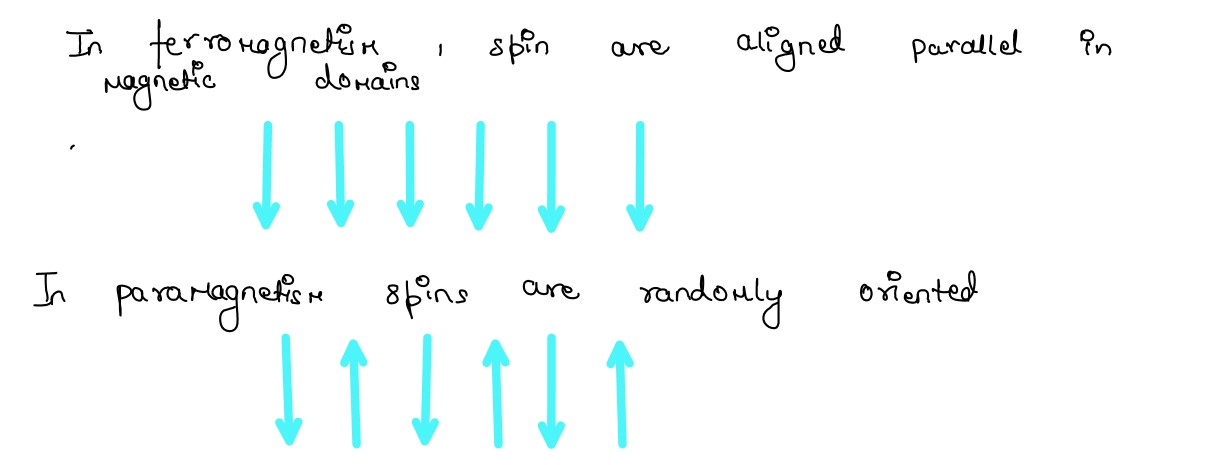 In ferromagnetism, spin are aligned parallel in
magnetic domains
In paramagnetism spins are randomly oriented